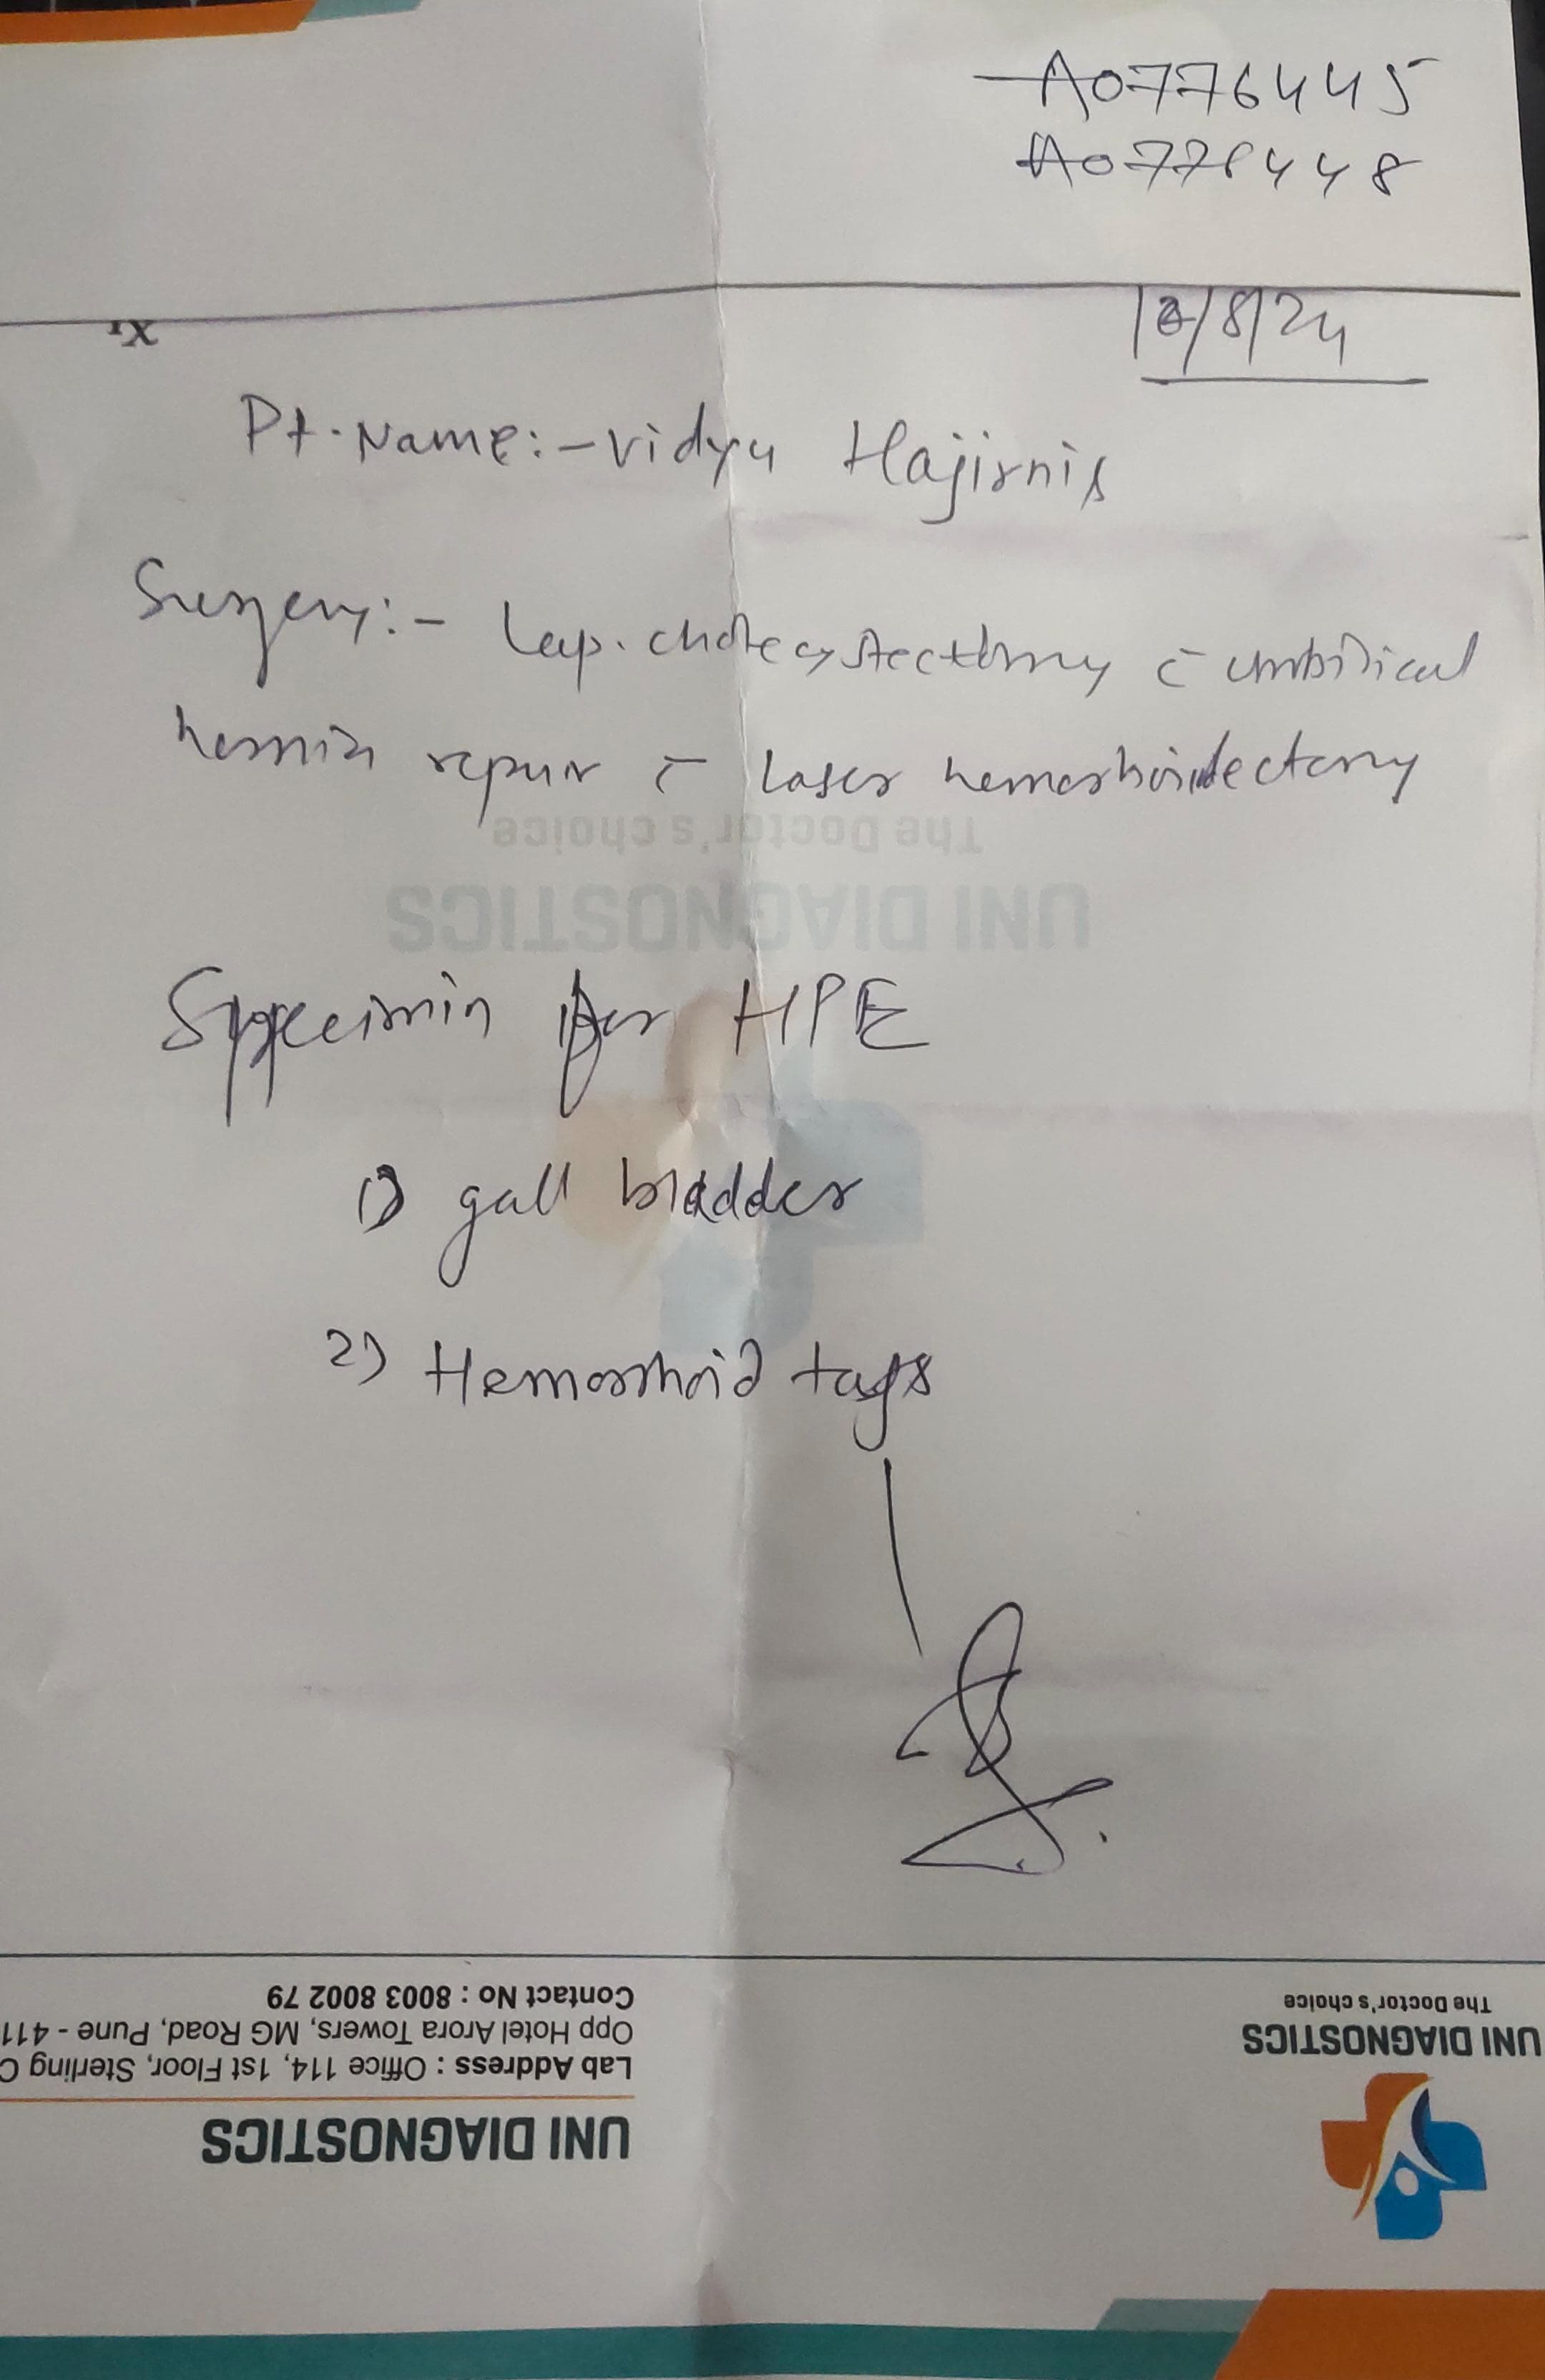 A0776445
A0776448
/8/24
Rx
Pt. Name:- Vidya Hajirnis
Surgery:- Lap. cholecystectomy c̄ umbilical
hernia repair c̄ Laser hemorrhoidectomy
The Doctor's choice
UNI DIAGNOSTICS
Specimin for HPE
1) gall bladder
2) Hemorrhoid tags
UNI DIAGNOSTICS
The Doctor's choice
UNI DIAGNOSTICS
Lab Address : Office 114, 1st Floor, Sterling C
Opp Hotel Arora Towers, MG Road, Pune - 411
Contact No : 8003 8002 79